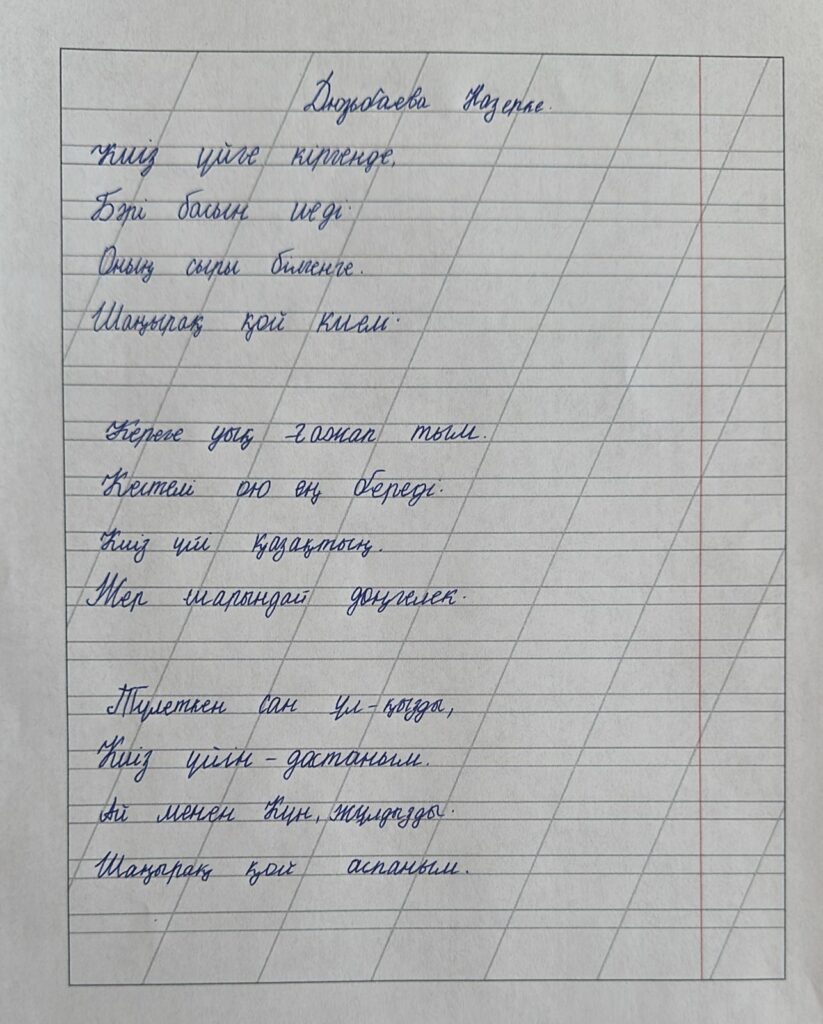 Дюзьбаева Назерке.
Киіз үйге кіргенде,
Бәрі басын иеді.
Оның сыры білгенге.
Шаңырақ қой кием.
Кереге уық ғажап тым.
Кестелі ою ең береді.
Киіз үйі қазақтың.
Жер шарындай дөңгелек.
Түлеткен сан ұл-қызды,
Киіз үйін - дастаным.
Ай менен Күн, жұлдызды.
Шаңырақ қой аспаным.